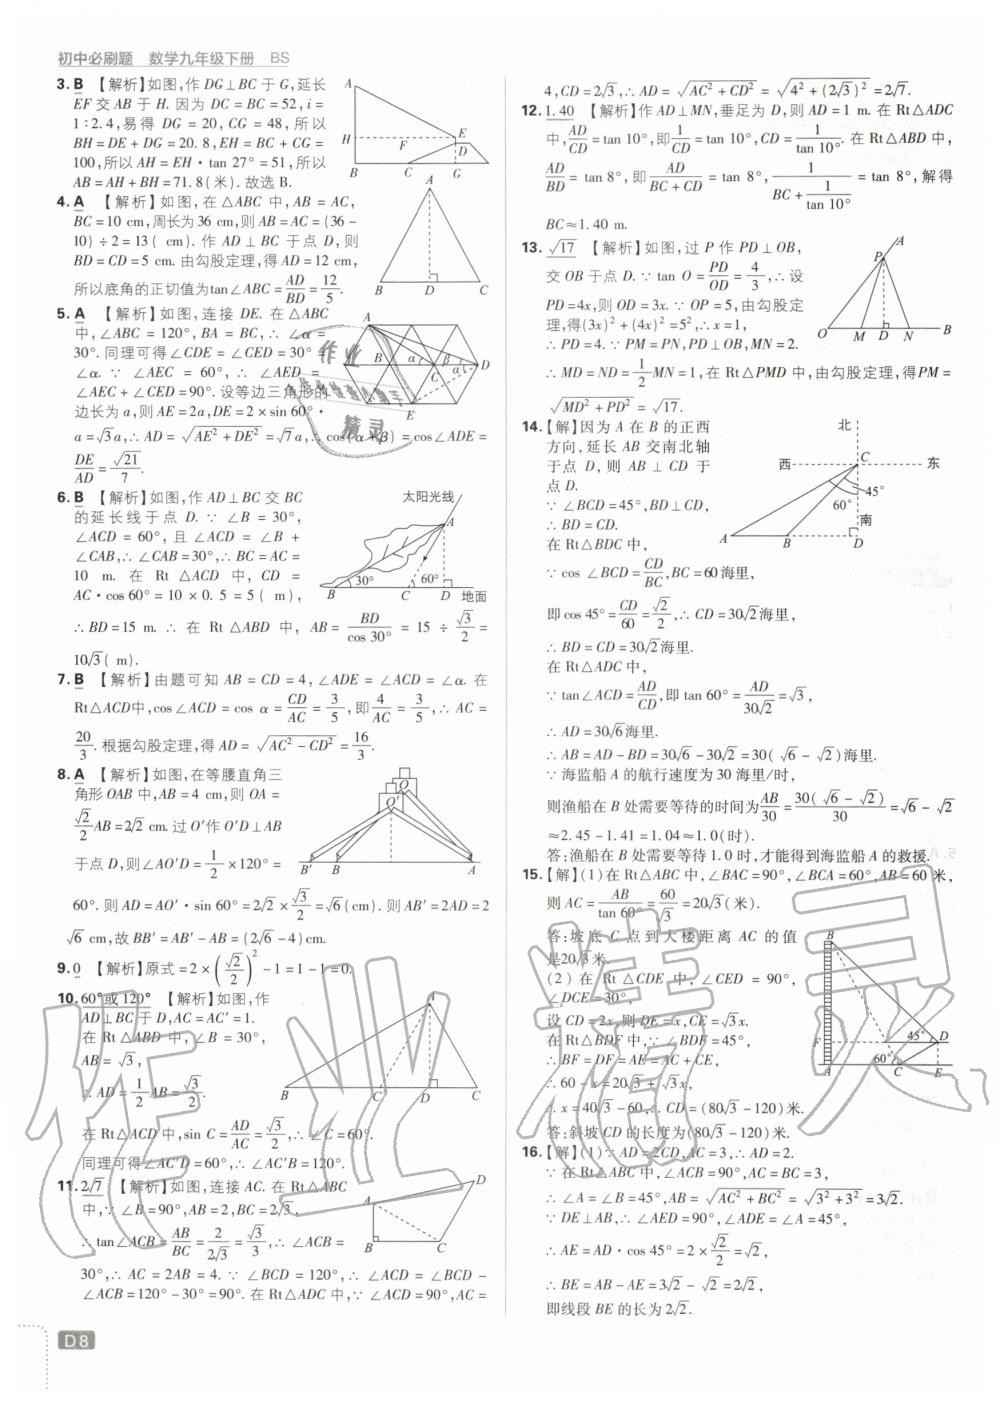 初中必刷题 数学九年级下册 BS
3. B 【解析】如图,作 DG⊥BC 于 G,延长
EF 交 AB 于 H. 因为 DC = BC = 52, i =
1∶2.4,易得 DG = 20, CG = 48,所以
BH = DE + DG = 20.8, EH = BC + CG =
100,所以 AH = EH·tan 27° = 51,所以
AB = AH + BH = 71.8(米). 故选 B.
4. A 【解析】如图,在△ABC 中, AB = AC,
BC = 10 cm,周长为 36 cm,则 AB = AC = (36 -
10) ÷ 2 = 13( cm). 作 AD⊥BC 于点 D,则
BD = CD = 5 cm. 由勾股定理,得 AD = 12 cm,
所以底角的正切值为 tan∠ABC = AD/BD = 12/5.
5. A 【解析】如图,连接 DE. 在△ABC
中,∠ABC = 120°, BA = BC,∴ ∠α =
30°. 同理可得∠CDE = ∠CED = 30° =
∠α. ∵ ∠AEC = 60°, ∴ ∠AED =
∠AEC + ∠CED = 90°. 设等边三角形的
边长为 a,则 AE = 2a, DE = 2 × sin 60°·
a = √3a,∴ AD = √(AE² + DE²) = √7a,∴ cos(α + β) = cos∠ADE =
DE/AD = √21/7.
6. B 【解析】如图,作 AD⊥BC 交 BC
的延长线于点 D. ∵ ∠B = 30°,
∠ACD = 60°, 且∠ACD = ∠B +
∠CAB,∴ ∠CAB = 30°,∴ BC = AC =
10 m. 在 Rt△ACD 中, CD =
AC·cos 60° = 10 × 0.5 = 5( m),
∴ BD = 15 m. ∴ 在 Rt△ABD 中, AB = BD/cos 30° = 15 ÷ √3/2 =
10√3( m).
7. B 【解析】由题可知 AB = CD = 4,∠ADE = ∠ACD = ∠α. 在
Rt△ACD中, cos∠ACD = cos α = CD/AC = 3/5,即 4/AC = 3/5,∴ AC =
20/3. 根据勾股定理,得 AD = √(AC² - CD²) = 16/3.
8. A 【解析】如图,在等腰直角三
角形 OAB 中, AB = 4 cm,则 OA =
√2/2 AB = 2√2 cm. 过 O′作 O′D⊥AB
于点 D,则∠AO′D = 1/2 × 120° =
60°. 则 AD = AO′·sin 60° = 2√2 × √3/2 = √6(cm). 则 AB′ = 2AD = 2
√6 cm,故 BB′ = AB′ - AB = (2√6 - 4)cm.
9. 0 【解析】原式 = 2 × (√2/2)² - 1 = 1 - 1 = 0.
10. 60°或 120° 【解析】如图,作
AD⊥BC 于 D, AC = AC′ = 1.
在 Rt△ABD 中,∠B = 30°,
AB = √3,
∴ AD = 1/2 AB = √3/2.
在 Rt△ACD 中, sin C = AD/AC = √3/2,∴ ∠C = 60°.
同理可得∠AC′D = 60°,∴ ∠AC′B = 120°.
11. 2√7 【解析】如图,连接 AC. 在 Rt△ABC
中,∵ ∠B = 90°, AB = 2, BC = 2√3,
∴ tan∠ACB = AB/BC = 2/2√3 = √3/3,∴ ∠ACB =
30°,∴ AC = 2AB = 4. ∵ ∠BCD = 120°,∴ ∠ACD = ∠BCD -
∠ACB = 120° - 30° = 90°. 在 Rt△ADC 中,∵ ∠ACD = 90°, AC =
D8
4, CD = 2√3,∴ AD = √(AC² + CD²) = √(4² + (2√3)²) = 2√7.
12. 1.40 【解析】作 AD⊥MN,垂足为 D,则 AD = 1 m. 在 Rt△ADC
中, AD/CD = tan 10°,即 1/CD = tan 10°, CD = 1/tan 10°. 在 Rt△ABD 中,
AD/BD = tan 8°,即 AD/(BC + CD) = tan 8°, 1/(BC + 1/tan 10°) = tan 8°,解得
BC ≈ 1.40 m.
13. √17 【解析】如图,过 P 作 PD⊥OB,
交 OB 于点 D. ∵ tan O = PD/OD = 4/3,∴ 设
PD = 4x,则 OD = 3x. ∵ OP = 5,由勾股定
理,得(3x)² + (4x)² = 5²,∴ x = 1,
∴ PD = 4. ∵ PM = PN, PD⊥OB, MN = 2.
∴ MD = ND = 1/2 MN = 1,在 Rt△PMD 中,由勾股定理,得 PM =
√(MD² + PD²) = √17.
14. 【解】因为 A 在 B 的正西
方向,延长 AB 交南北轴
于点 D,则 AB⊥CD 于
点 D.
∵ ∠BCD = 45°, BD⊥CD,
∴ BD = CD.
在 Rt△BDC 中,
∵ cos ∠BCD = CD/BC, BC = 60 海里,
即 cos 45° = CD/60 = √2/2,∴ CD = 30√2海里.
∴ BD = CD = 30√2海里.
在 Rt△ADC 中,
∵ tan∠ACD = AD/CD,即 tan 60° = AD/30√2 = √3,
∴ AD = 30√6海里.
∴ AB = AD - BD = 30√6 - 30√2 = 30( √6 - √2)海里.
∵ 海监船 A 的航行速度为 30 海里/时,
则渔船在 B 处需要等待的时间为 AB/30 = 30( √6 - √2)/30 = √6 - √2
≈2.45 - 1.41 = 1.04≈1.0(时).
答:渔船在 B 处需要等待 1.0 时,才能得到海监船 A 的救援.
15. 【解】(1)在 Rt△ABC 中,∠BAC = 90°,∠BCA = 60°, AB = 60 米,
则 AC = AB/tan 60° = 60/√3 = 20√3(米).
答:坡底 C 点到大楼距离 AC 的值
是20√3米.
(2) 在 Rt△CDE 中, ∠CED = 90°,
∠DCE = 30°,
设 CD = 2x,则 DE = x, CE = √3x.
在 Rt△BDF 中,∵ ∠BDF = 45°,
∴ BF = DF = AE = AC + CE,
∴ 60 - x = 20√3 + √3x,
∴ x = 40√3 - 60,∴ CD = (80√3 - 120)米.
答:斜坡 CD 的长度为(80√3 - 120)米.
16. 【解】(1)∵ AD = 2CD, AC = 3,∴ AD = 2.
∵ 在 Rt△ABC 中,∠ACB = 90°, AC = BC = 3,
∴ ∠A = ∠B = 45°, AB = √(AC² + BC²) = √(3² + 3²) = 3√2.
∵ DE⊥AB,∴ ∠AED = 90°,∠ADE = ∠A = 45°,
∴ AE = AD·cos 45° = 2 × √2/2 = √2,
∴ BE = AB - AE = 3√2 - √2 = 2√2,
即线段 BE 的长为 2√2.